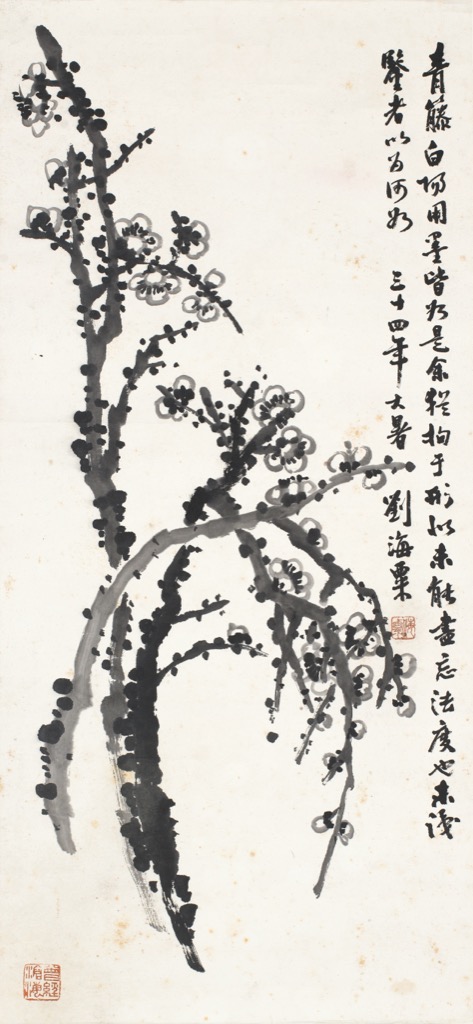 青藤白陽用墨皆如是余猶拘于形似未能盡忘法度也未識
鑒者以為何如　三十四年大暑　劉海粟
曾經滄海